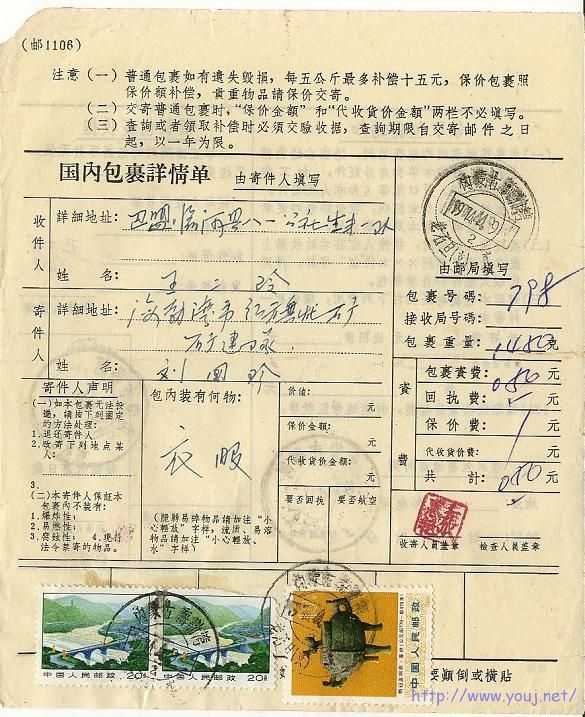 (邮1106)
注意（一）普通包裹如有遗失毁損，每五公斤最多补偿十五元，保价包裹照
保价額补偿，貴重物品請保价交寄。
（二）交寄普通包裹时，“保价金額”和“代收貨价金額”两栏不必填写。
（三）查詢或者領取补偿时必須交驗收据，查詢期限自交寄邮件之日
起，以一年为限。
国內包裹詳情单 由寄件人填写
收件人
詳細地址：巴盟临河县八一公社生丰一队
姓名：王二玲
寄件人
詳細地址：
姓名：刘田玲
由邮局填写
包裹号碼：798
接收局号碼：
包裹重量：1480克
資費
包裹資費：050元
回执費：元
保价費：元
代收貨价費：元
共計：050元
收寄人員盖章 檢查人員盖章
寄件人声明
（一）如本包裹无法投
递，請按下列圈定
的方法处理：
1.退还寄件人
2.改寄下列地点某
人：
3.
（二）本寄件人保証本
包裹內不装有：
1.爆炸性；
2.易燃性；
3.腐蝕性； 4.現行
法令禁寄的物品。
包內装有何物：
衣服
（肥料易碎物品請加注“小
心輕放”字样，流质、易溶
物品請加注“小心輕放、
水”字样）
价值：元
保价金額：元
代收貨价金額：元
要否回执 要否航空
中国人民邮政 20分
中国人民邮政 20分
中国人民邮政
要顛倒或橫貼
http://www.youj.net/